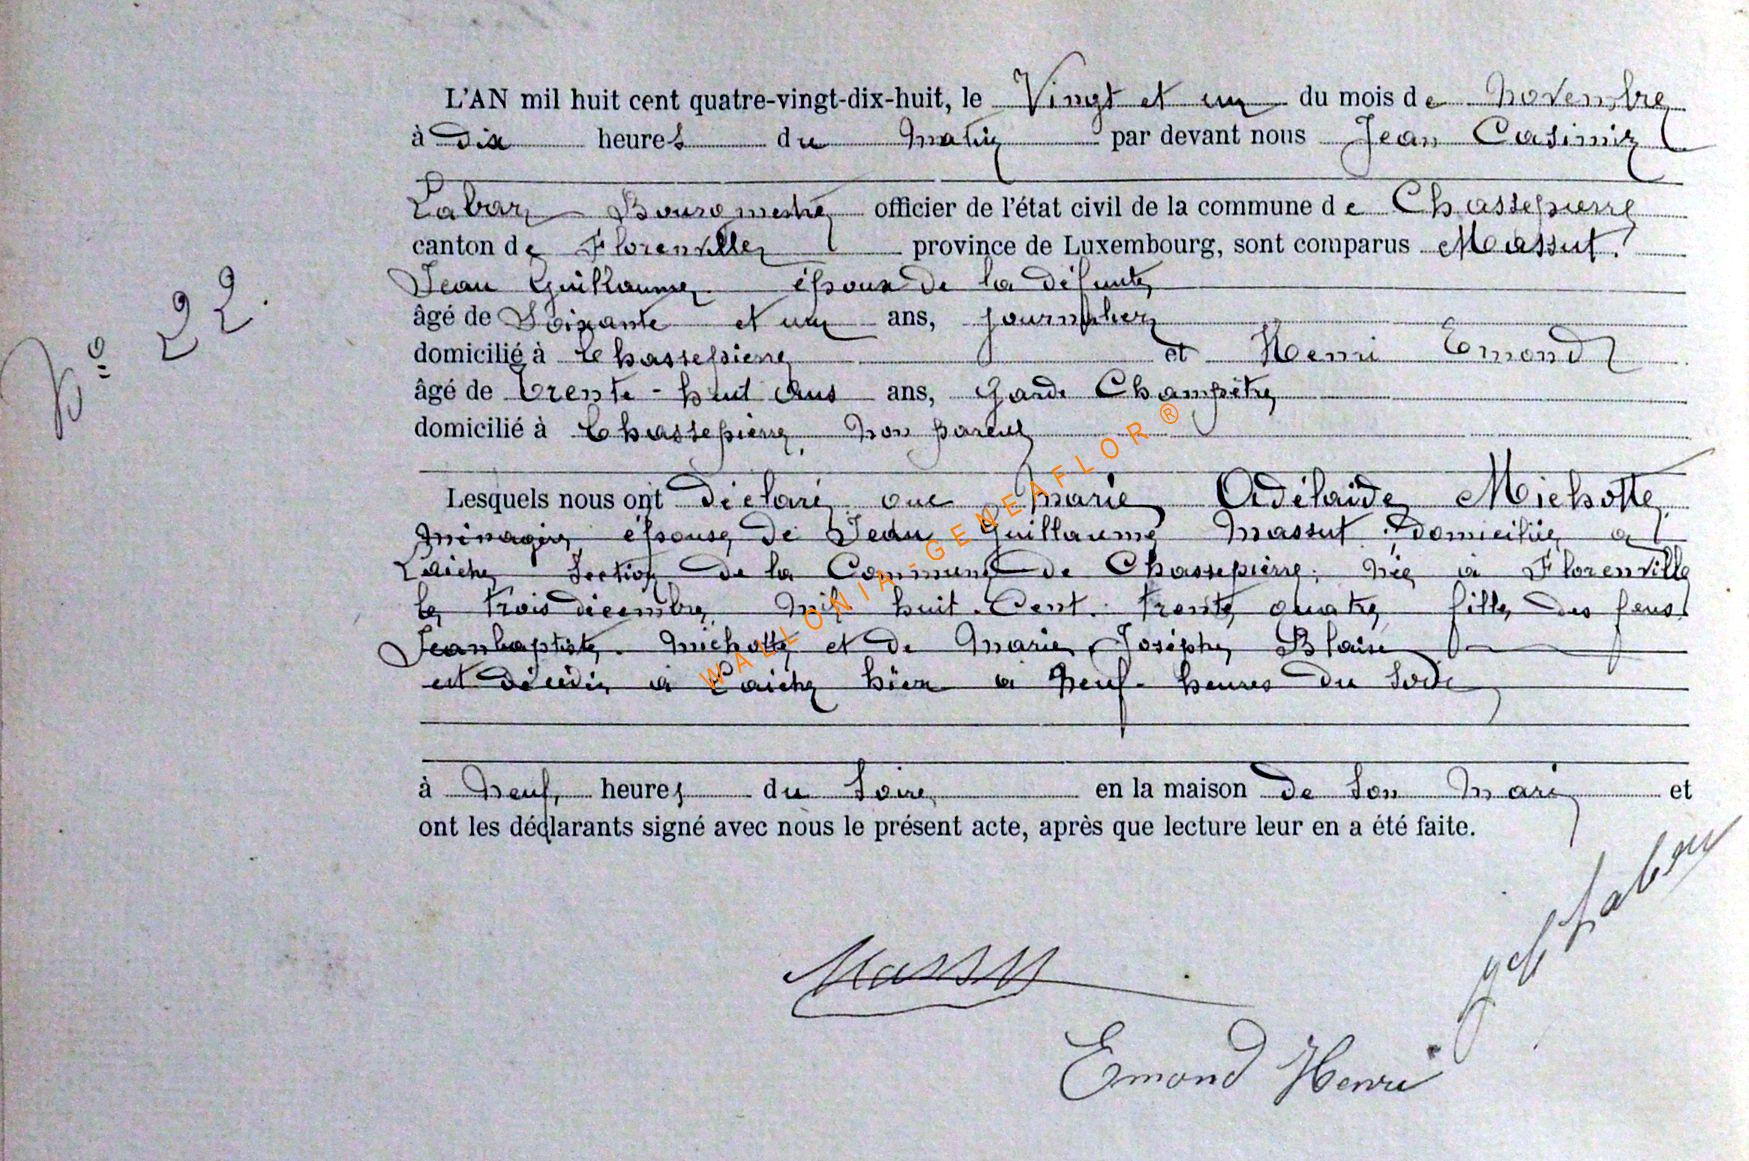 L'AN mil huit cent quatre-vingt-dix-huit, le Vingt et un du mois de novembre
à dix heures du matin par devant nous Jean Casimir
Labar Bourgmestre officier de l'état civil de la commune de Chassepierre
canton de Florenville province de Luxembourg, sont comparus Massut
Jean Guillaume époux de la défunte
âgé de Soixante et un ans, journalier
domicilié à Chassepierre et Henri Emond
âgé de trente-huit ans ans, garde Champêtre
domicilié à Chassepierre, non parent
N° 22.
Lesquels nous ont déclaré que Marie Adélaide Michotte
ménagère épouse de Jean Guillaume Massut domiciliée à
Laiche Section de la Commune de Chassepierre, née à Florenville
le trois décembre mil huit Cent trente quatre fille des feus
Jeanbaptiste Michotte et de Marie Joséphe Blaise
est décédée à Laiche hier à neuf heures du
à neuf heures du soire en la maison de son mari et
ont les déclarants signé avec nous le présent acte, après que lecture leur en a été faite.
Massut
Emond Henri
WALLONIA-GENEAFLOR®